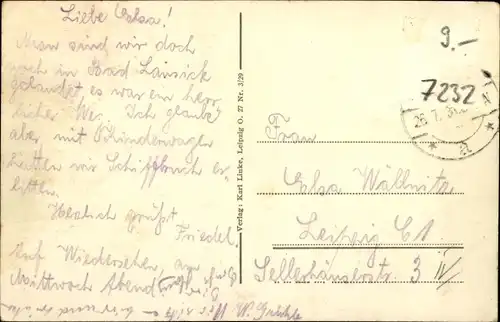 Liebe Elsa!
Nun sind wir doch
noch in Bad Lausick
gelandet es war ein herr
licher Weg. Ich glaube
aber mit Kinderwagen
hätten wir Schiffbruch er-
litten.
Herzlich grüßt
Friedel,
Auf Wiedersehen, am
Mittwoch Abend.
W.
Verlag: Karl Linke, Leipzig O. 27 Nr. 3/29
9.-
7232
26. 7. 3
Frau
Elsa Wallnitz
Leipzig C1.
Sellerhäuserstr. 3 IV/